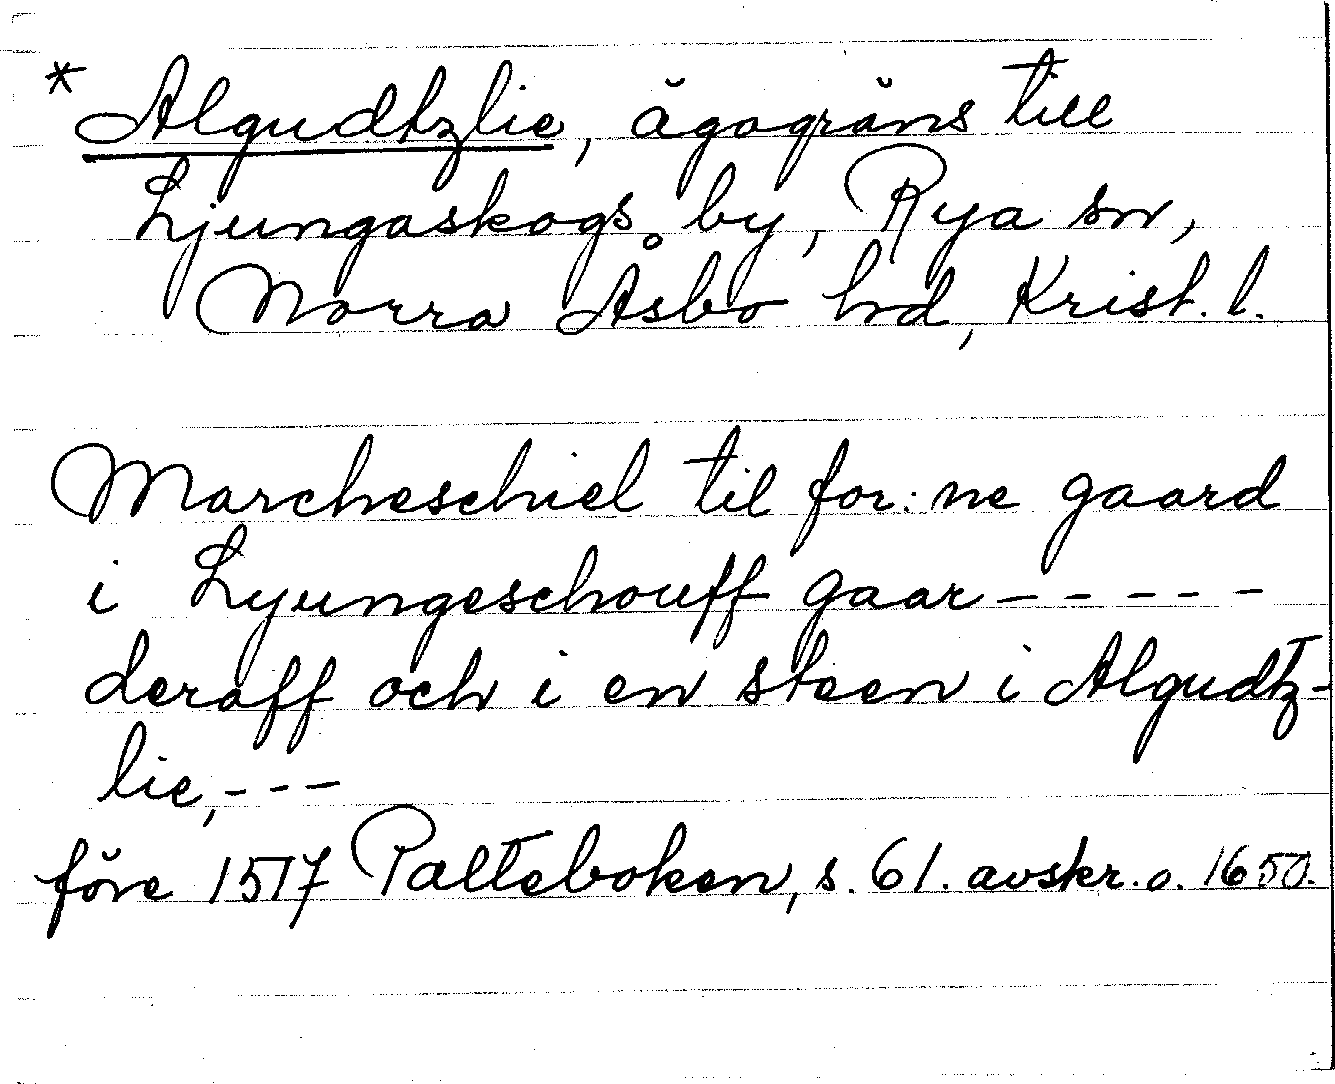 * Algudtzlie, ägogräns till
Ljungaskogs by, Rya sn,
Norra Åsbo hd, Krist. l.
Marcheschiel til for: ne gaard
i Lyungeschouff gaar - - - - -
deraff och i en steen i Algudtz-
lie, - - -
före 1517 Palteboken, s. 61. avskr. o. 1650.